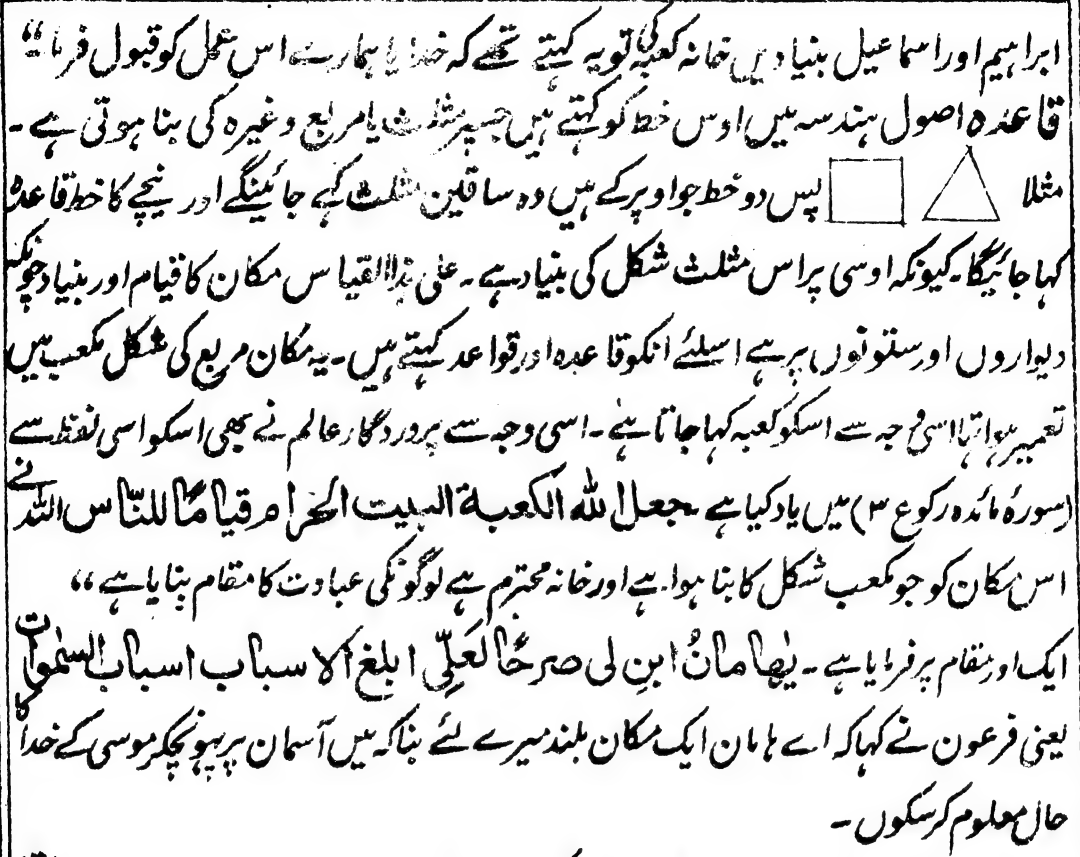 ابراہیم اور اسماعیل بنیادیں خانہ کعبہ کی تو یہ کہتے تھے کہ خدایا ہمارے اس عمل کو قبول فرما“
قاعدہ اصول ہندسہ میں اوس خط کو کہتے ہیں جسپر مثلث یا مربع وغیرہ کی بنا ہوتی ہے ۔
مثلا پس دو خط جو اوپر کے ہیں وہ ساقین مثلث کہے جائینگے اور نیچے کا خط قاعدہ
کہا جائیگا۔ کیونکہ اوسی پر اس مثلث شکل کی بنیاد ہے ۔ علی ہذا القیاس مکان کا قیام اور بنیاد چونکہ
دیواروں اور ستونوں پر ہے اسلئے انکو قاعدہ اور قواعد کہتے ہیں ۔ یہ مکان مربع کی شکل مکعب میں
تعمیر ہوا تھا اسی وجہ سے اسکو کعبہ کہا جاتا ہے ۔ اسی وجہ سے پروردگار عالم نے بھی اسکو اسی لفظ سے
(سورۂ مائدہ رکوع ۳) میں یاد کیا ہے ۔ جعل اللہ الکعبۃ البیت الحرام قیامًا للنّاس اللہ نے
اس مکان کو جو مکعب شکل کا بنا ہوا ہے اور خانہ محترم ہے لوگونکی عبادت کا مقام بنایا ہے“
ایک اور مقام پر فرمایا ہے ۔ یٰھامانُ ابنِ لی صرحًا لعَلِّی ابلغ الاسباب اسباب السمٰوات
یعنی فرعون نے کہا کہ اے ہامان ایک مکان بلند میرے لئے بنا کہ میں آسمان پر پہونچکر موسی کے خدا کا
حال معلوم کرسکوں ۔